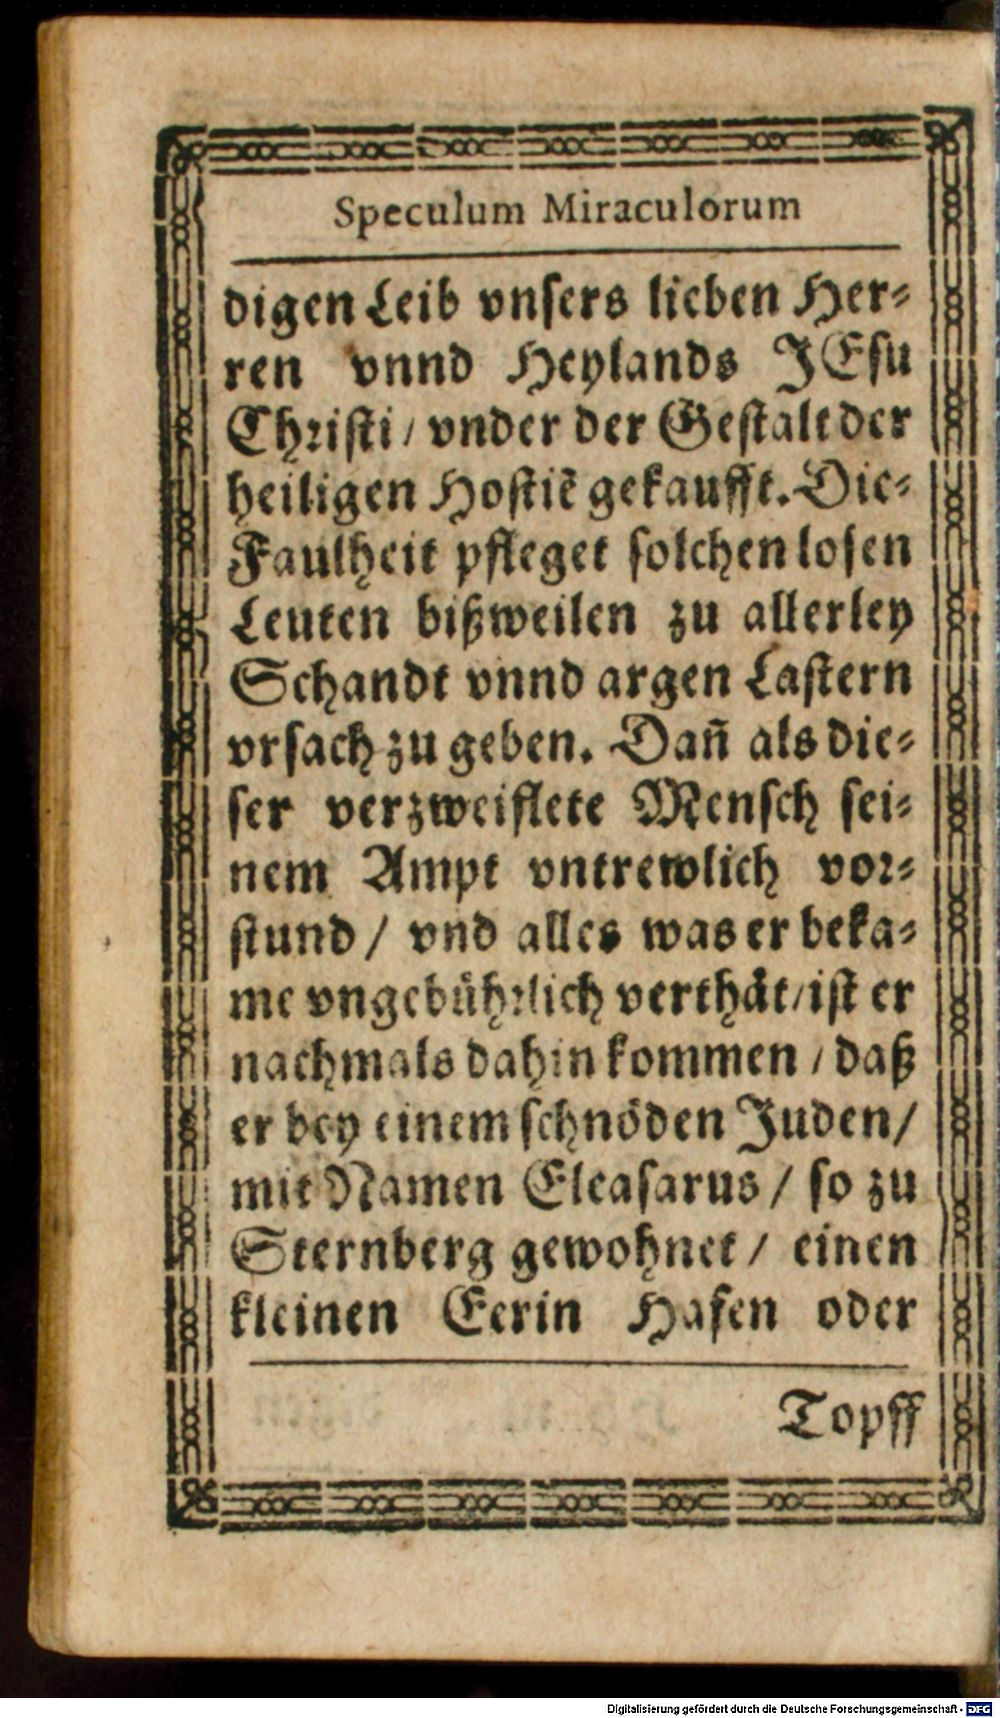 Speculum Miraculorum
digen Leib vnsers lieben Her-
ren vnnd Heylands JEsu
Christi / vnder der Gestalt der
heiligen Hostiẽ gekaufft. Die-
Faulheit pfleget solchen losen
Leuten bißweilen zu allerley
Schandt vnnd argen Lastern
vrsach zu geben. Dañ als die-
ser verzweiflete Mensch sei-
nem Ampt vntrewlich vor-
stund / vnd alles was er beka-
me vngebührlich verthät / ist er
nachmals dahin kommen / daß
er bey einem schnöden Juden /
mit Namen Eleasarus / so zu
Sternberg gewohnet / einen
kleinen Eerin Hafen oder
Topff
Digitalisierung gefördert durch die Deutsche Forschungsgemeinschaft - DFG